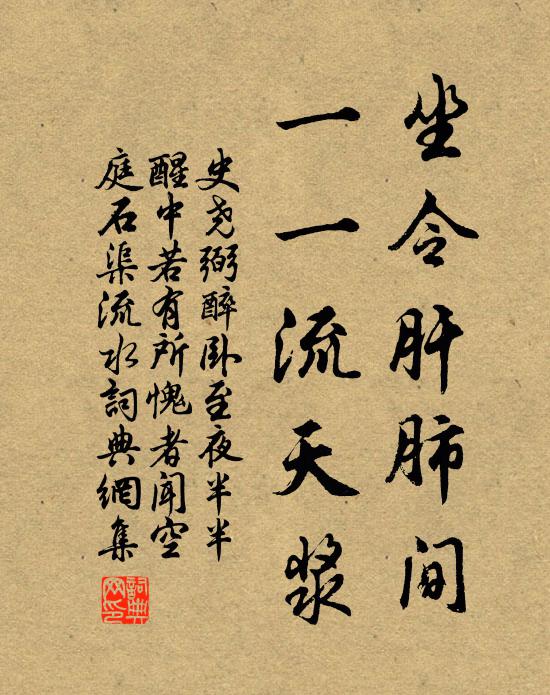 坐令肝肺间
一一流天浆
史尧弼醉卧至夜半半
醒中若有所愧者闻空
庭石渠流水词典网集
词典
网印